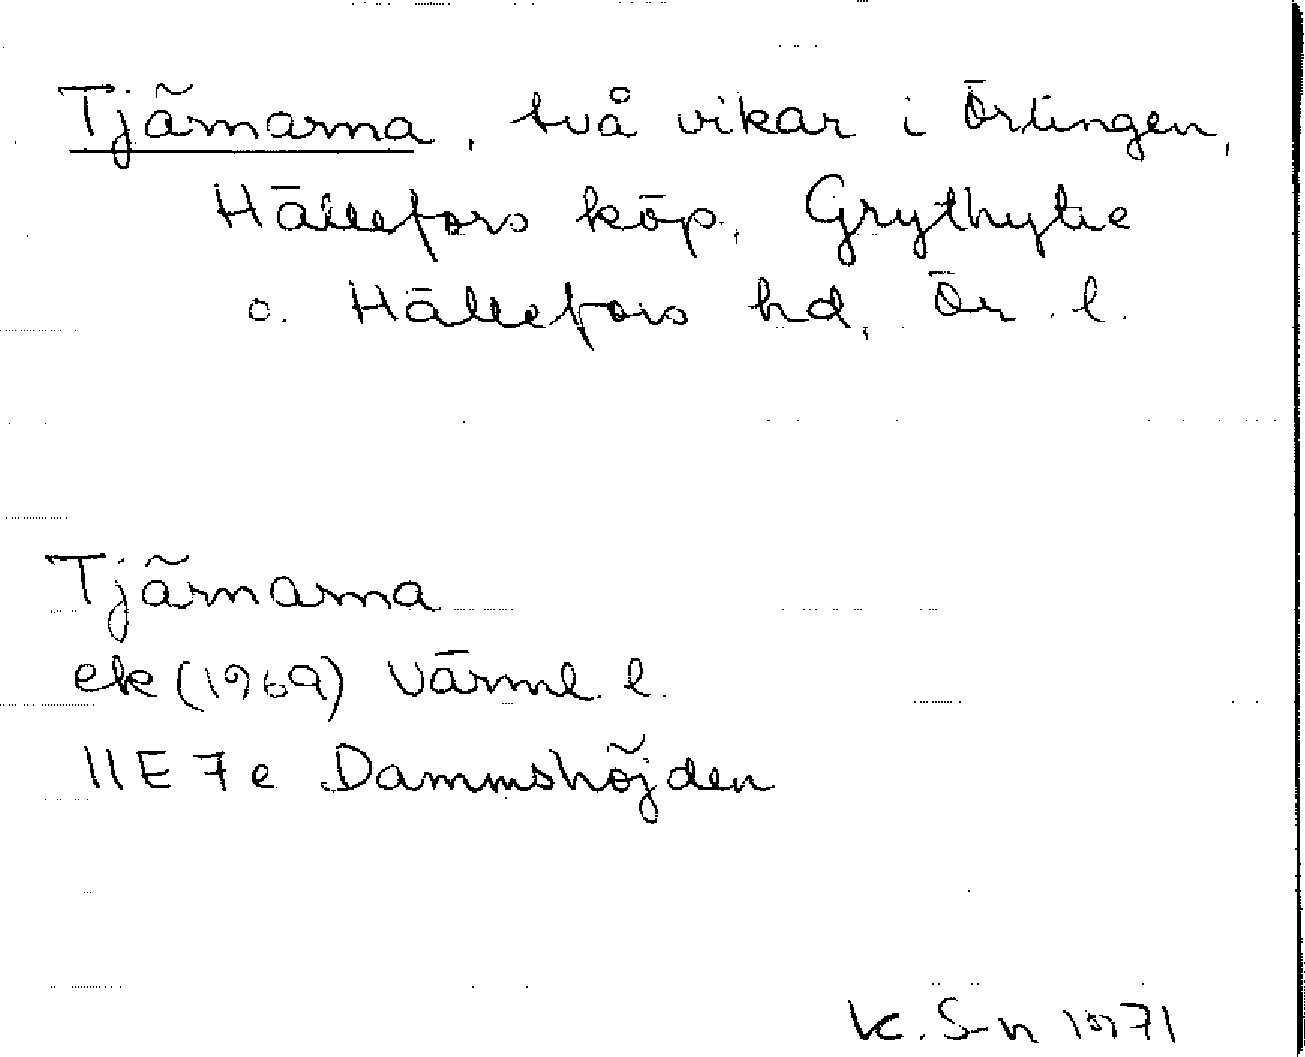 Tjärnarna, två vikar i Örlingen,
Hällefors köp, Grythytte
o. Hällefors hd, Ör. l.
Tjärnarna
ek (1969) Värml. l.
11E 7e Dammshöjden
K. S-n 1971